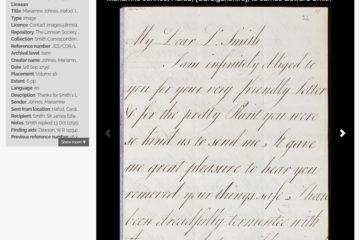 Linnean
Title: Marianne Johnes, Hafod,
Type: Image
Licence: Contact images@linnean
Repository: The Linnean Society
Collection: Smith Corresponden
Reference number: JES/COR/1
Archival level: Item
Creator name: Johnes, Marianne
Date: [28 Sep 1795]
Placement: Volume 16
Extent: 6 pp
Language: en
Description: Thanks for Smith's l
Sender: Johnes, Marianne
Sent from location: Hafod, Card
Recipient: Smith, Sir James Edw
Notes: Smith replied 13 Oct 1795
Finding aids: Dawson, W R (1934)
Previous reference number:
Show more
My Dear Dr. Smith
I am infinitely obliged to
you for your very friendly Letter
& for the pretty Plant you were
so kind as to send me. It gave
me great pleasure to hear you
removed your things safe. I have
been dreadfully tormented with